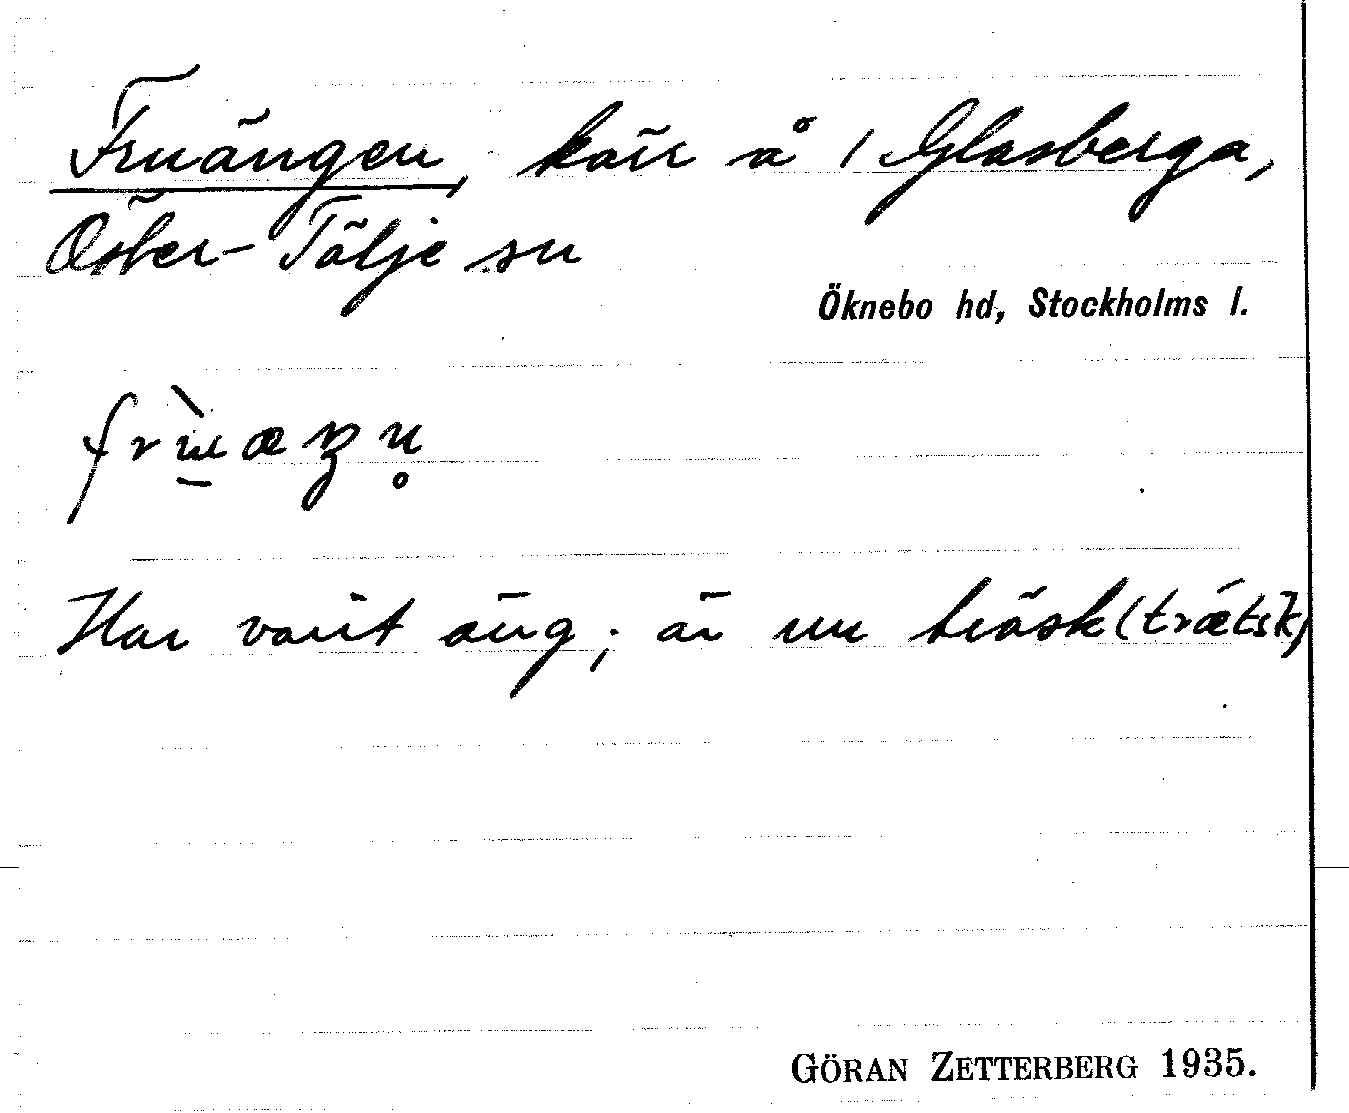 Fruängen, kärr å 1 Glasberga,
Öster-Tälje sn
Öknebo hd, Stockholms l.
Har varit äng; är nu träsk (trætsk)
GÖRAN ZETTERBERG 1935.